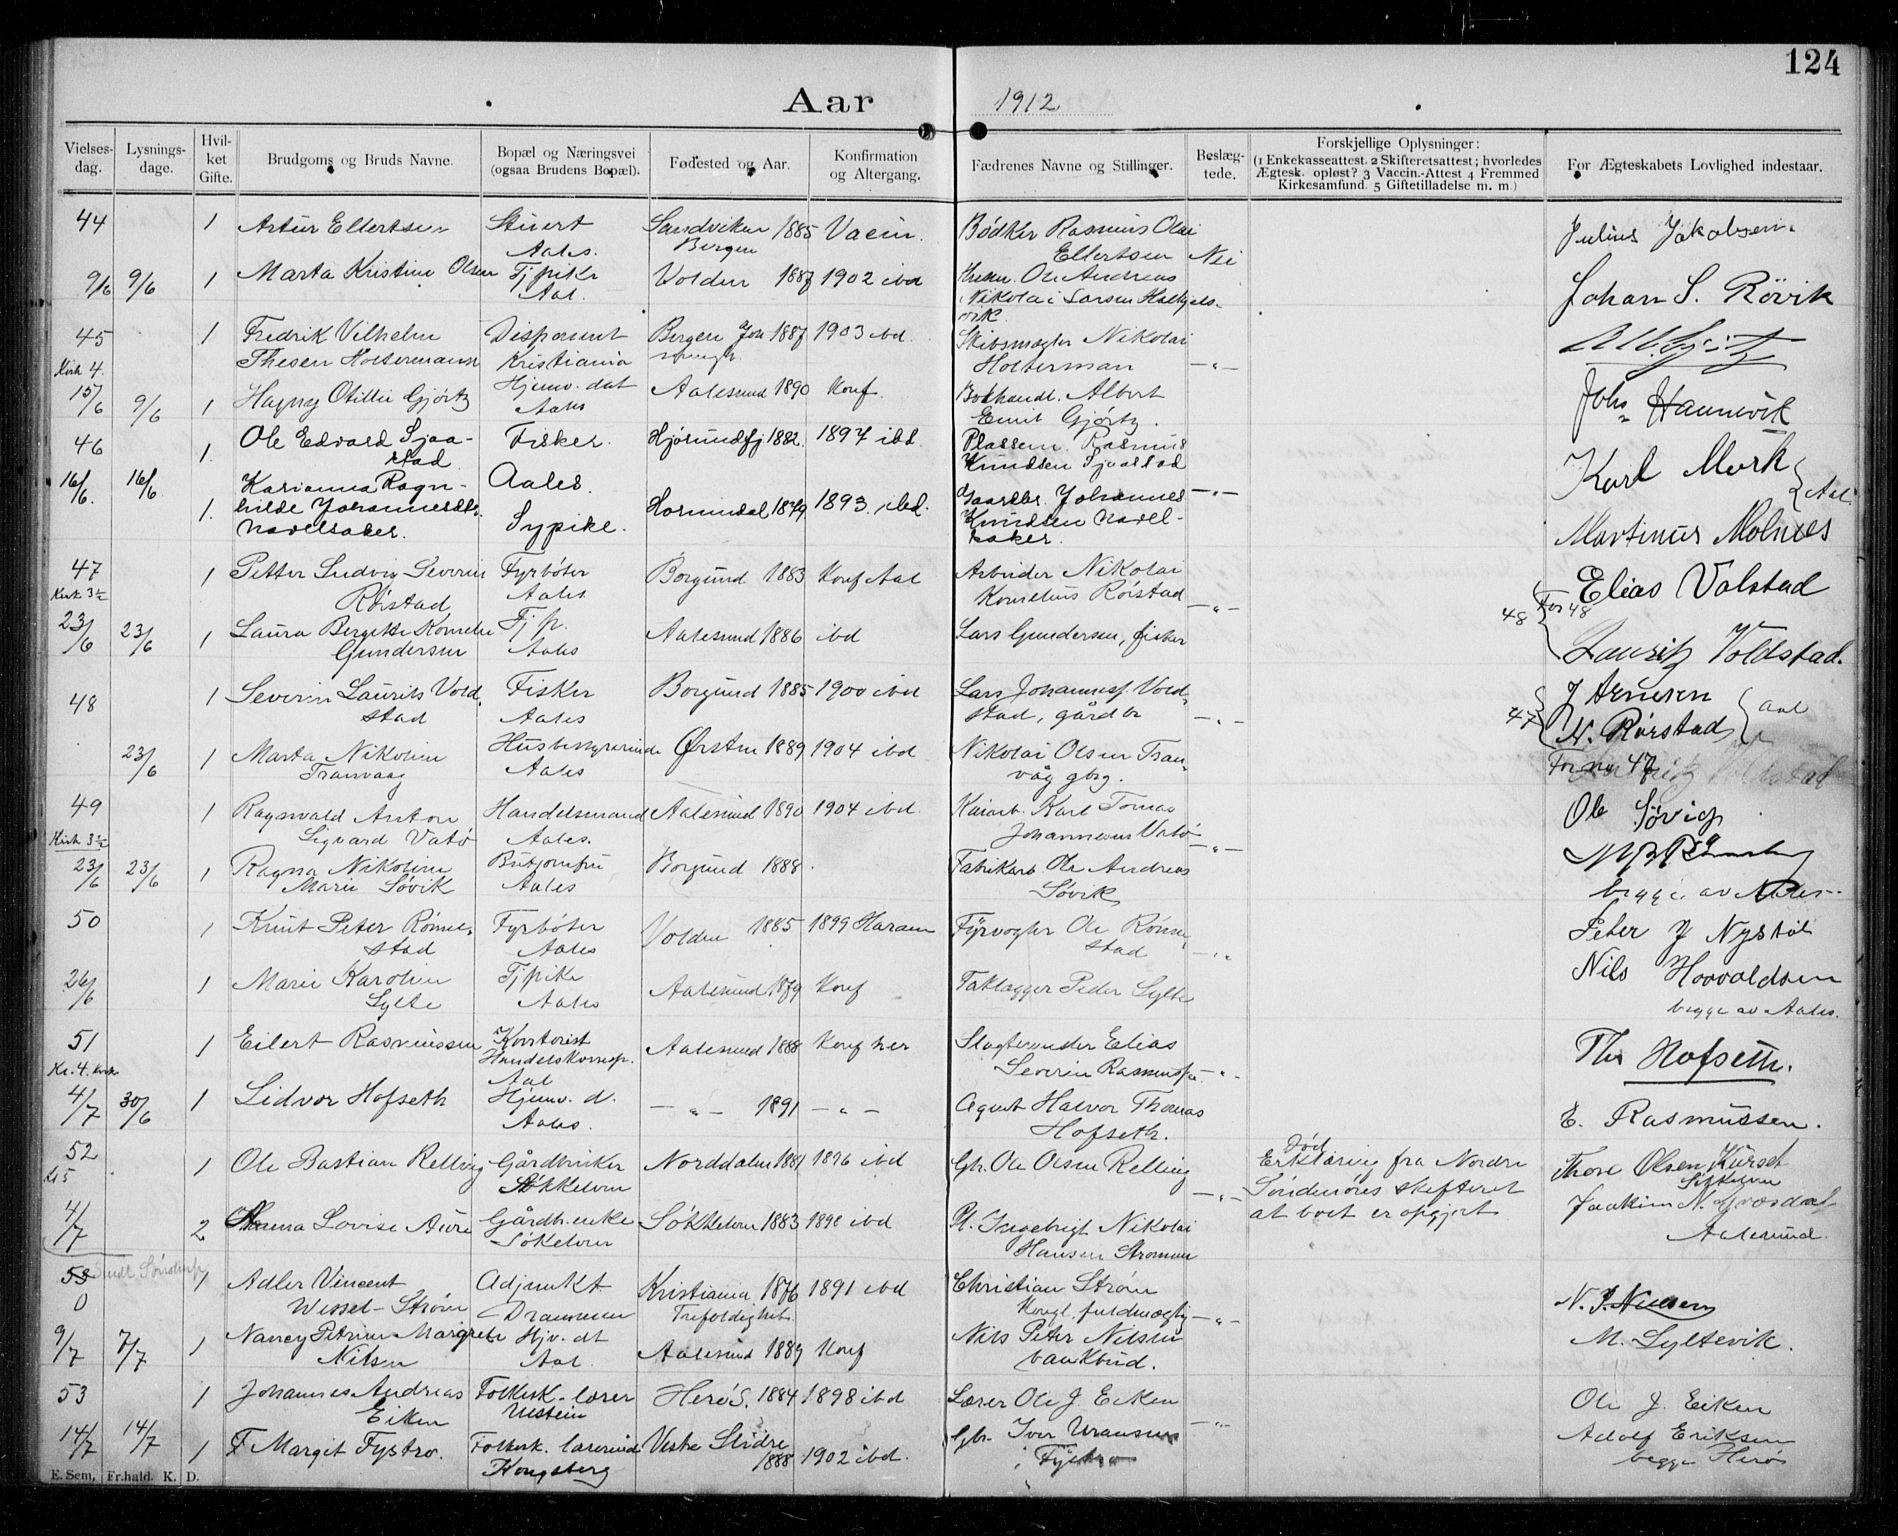 124
Aar 1912
Vielses- dag. Lysnings- dage. Hvil- ket Gifte. Brudgoms og Bruds Navne. Bopæl og Næringsvei (ogsaa Brudens Bopæl). Fødested og Aar. Konfirmation og Altergang. Fædrenes Navne og Stillinger. Beslæg- tede. Forskjellige Oplysninger: (1 Enkekasseattest. 2 Skifteretsattest; hvorledes Ægtesk. opløst? 3 Vaccin.-Attest 4 Fremmed Kirkesamfund. 5 Giftetilladelse m. m.) For Ægteskabets Lovlighed indestaar.
44 1 Artur Ellertsen Stuert Sandviken 1885 Vaccin. Bødker Rasmus Olai Julius Jakobsen.
Aales. Bergen Ellertsen Nei
9/6 9/6 1 Marta Kristine Olsen Tj pike Volden 1887 1902 ibd Ole Andreas Johan S. Rövik
Aal. Nikolai Larsen
vik.
45 1 Fredrik Vilhelm Disponent Bergen 1887 1903 ibd. Skibsmægler Nikolai
Kirk 4. Thesen Holtermann Kristiania Holterman -„-
15/6 9/6 1 Hagny Otilie Gjörtz Hjemv. dat Aalesund 1890 Konf. Bokhandl. Albert Johs Hannevik
Aales Emil Gjörtz.
46 1. Ole Edvard Sjaa- Fisker. Hjörundfj 1882. 1897 ibd. Plassem. Rasmus Karl Mork
stad Knudsen Sjaastad } Aal.
16/6. 16/6 1. Karianna Ragn- Aales. Hornindal 1879 1893. ibd. Gaardbr. Johannes -„-
hilde Johannesdtr. Sypike. Knudsen Navel- Martinus Molnes
Navelsaker. saker.
47 1 Petter Ludvig Severin Fyrböter Borgund 1883 Konf Aal Arbeider Nikolai Elias Valstad
Kirk 3½ Rörstad Aales Kornelius Rörstad -„- 48 For 48
23/6 23/6 1 Laura Bergitte Kornelie Tj p. Aalesund 1886 ibd Lars Gundersen, fisker Lauritz Voldstad.
Gundersen Aales
48 1 Severin Laurits Vold Fisker Borgund 1885 1900 ibd Lars Johannes. Vold 47 J Arnesen
stad Aales stad, gårdbr -„- N. Rörstad } Aal
23/6 1 Marta Nikoline Husbestyrerinde Örsten 1889 1904 ibd Nikolai Olsen Tran- For no 47
Tranvaag Aales våg gbr.
49 1 Ragnvald Anton Handelsmand Aalesund 1890 1904 ibd. Kaiarb. Karl Tomas Ole Sövig
Kirk 3½ Sigvard Vatö Aales. Johannesen Vatö -„-
23/6 23/6 1 Ragna Nikoline Butjomfru Borgund 1888. Fabrikarb Ole Andreas
Marie Sövik Aales Sövik begge av Aales.
50 1 Knut Peter Rönne- Fyrböter Volden 1885 1899 Haram Fyrvogter Ole Rönne- Peter J Nystöl
stad Aales stad -„-
26/6 1 Marie Karoline Tj pike Aalesund 1879 Konf Taklægger Peder Sylte Nils Hovoldsen
Sylte Aales begge av Aales.
51 1 Eilert Rasmussen Kontorist Aalesund 1888 Konf her Slagtermester Elias Ths Hofseth.
Kl. 4. Kirk. Handelskorresp. Aal Severin Rasmussen -„-
4/7 30/6 1 Lidvor Hofseth Hjemv. d. -„- 1891 -„- Agent Halvor Thomas E. Rasmussen.
Aales. Hofseth.
52 1 Ole Bastian Relling Gårdbruker Norddalen 1881 1896 ibd Gbr. Ole Olsen Relling Erklæring fra Nordre Thore Olsen Kurset
Kl 5 Sökkelven -„- Söndmöres skifteret Sökkelven
4/7 2 Anna Lovise Aure Gårdb.enke Sökkelven 1883 1898 ibd Pl. Ingebrigt Nikolai at boet er opgjort Joakim N.
Sökelven Hansen Strømmen Aalesund.
53 1 Adler Vincent Adjunkt Kristiania 1876 1891 ibd Christian Ström N. P. Nielsen
0 Wessel-Ström Drammen Trefoldighet. Kongl. fuldmægtig -„-
9/7 7/7 1 Nancy Petrine Margrete Hjv. dt Aalesund 1889 Konf Nils Peter Nilsen M. Syltevik.
Nilsen Aal. bankbud.
53 1 Johannes Andreas Folkesk.-lærer Herö S. 1884 1898 ibd Lærer Ole J. Eiken Ole J. Eiken
Eiken Ulstein -„- Adolf Eriksen
14/7 14/7 1 Margit Fystro. Folkesk. lærerinde Vestre Slidre 1888 1902 ibd. Gbr. Iver begge Herö
Kongsberg i Fystro
E. Sem, Fr.hald. K. D.